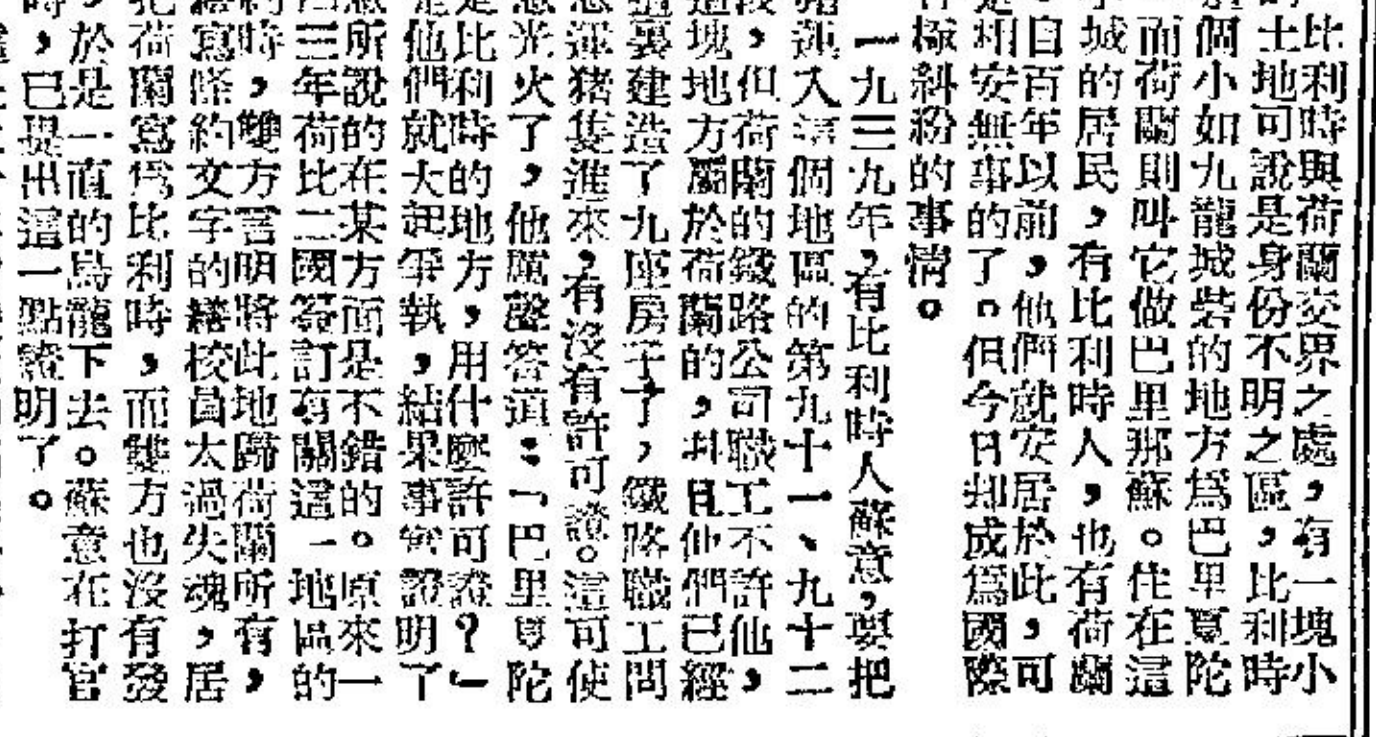 比利時與荷蘭交界之處，有一塊小
土地可說是身份不明之區，比利時
個小如九龍城砦的地方爲巴里夏陀
而荷蘭則叫它做巴里那蘇。住在這
城的居民，有比利時人，也有荷蘭
自百年以前，他們就安居於此，可
相安無事的了。但今日却成爲國際
極糾紛的事情。
一九三九年，有比利時人蘇意，要把
運入這個地區的第九十一、九十二
，但荷蘭的鐵路公司職工不許他，
塊地方屬於荷蘭的，幷且他們已經
裏建造了九座房子了，鐵路職工問
運猪隻進來，有沒有許可證。這可使
光火了，他厲聲答道：「巴里夏陀
比利時的地方，用什麼許可證？」
他們就大起爭執，結果事實證明了
所說的在某方面是不錯的。原來一
三年荷比二國簽訂有關這一地區的
時，雙方言明將此地歸荷蘭所有，
寫條約文字的繕校員太過失魂，居
荷蘭寫爲比利時，而雙方也沒有發
於是一直的烏龍下去。蘇意在打官
，已提出這一點證明了。